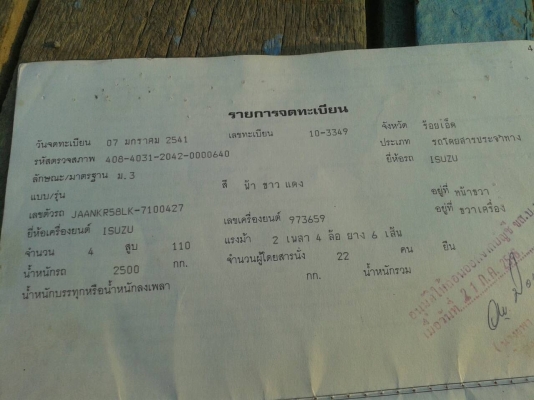 4
รายการจดทะเบียน
วันจดทะเบียน 07 มกราคม 2541 เลขทะเบียน 10-3349 จังหวัด ร้อยเอ็ด
รหัสตรวจสภาพ 408-4031-2042-0000640 ประเภท รถโดยสารประจำทาง
ลักษณะ/มาตรฐาน ม.3 สี ฟ้า ขาว แดง ยี่ห้อรถ ISUZU
แบบ/รุ่น
เลขตัวรถ JAANKR58LK-7100427 อยู่ที่ หน้าขวา
ยี่ห้อเครื่องยนต์ ISUZU เลขเครื่องยนต์ 973659 อยู่ที่ ขวาเครื่อง
จำนวน 4 สูบ 110 แรงม้า 2 เพลา 4 ล้อ ยาง 6 เส้น
น้ำหนักรถ 2500 กก. จำนวนผู้โดยสารนั่ง 22 คน ยืน
น้ำหนักบรรทุกหรือน้ำหนักลงเพลา กก. น้ำหนักรวม
เมื่อวันที่ 21 ก.ค.